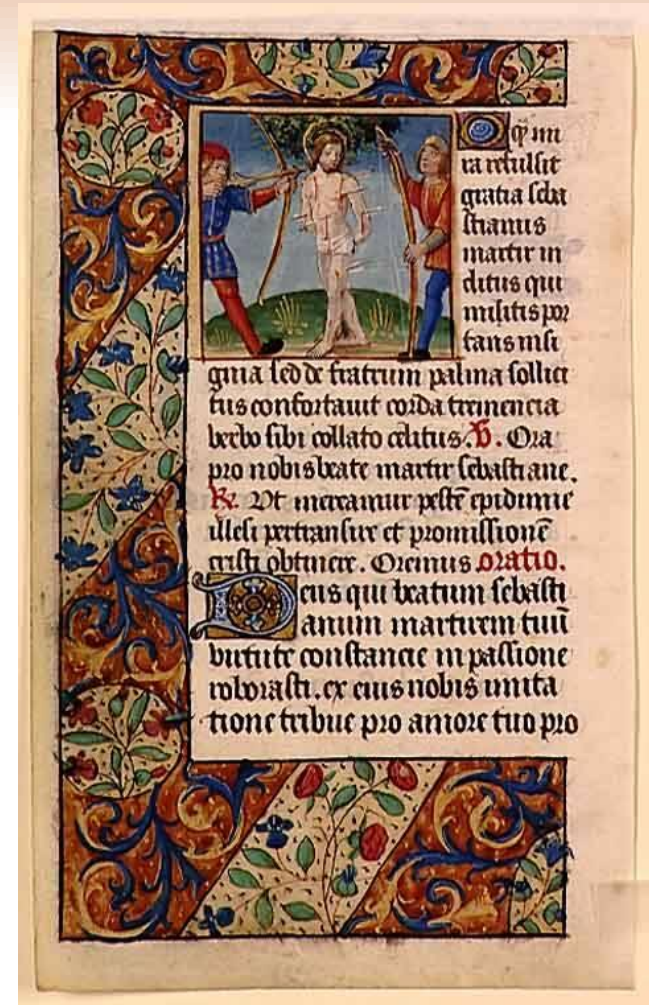 O q̄ mi
ra refulsit
gratia seba
stianus
martir in
clitus qui
militis por
tans insi
gnia sed de fratrum palma sollici
tus confortauit corda tremencia
verbo sibi collato celitus. V. Ora
pro nobis beate martir sebastiane.
R. Vt mereamur pestē epidimie
illesi pertransire et promissionē
cristi obtinere. Oremus oratio.
Deus qui beatum sebasti
anum martirem tuū
virtute constancie in passione
roborasti. ex eius nobis imita
tione tribue pro amore tuo pro